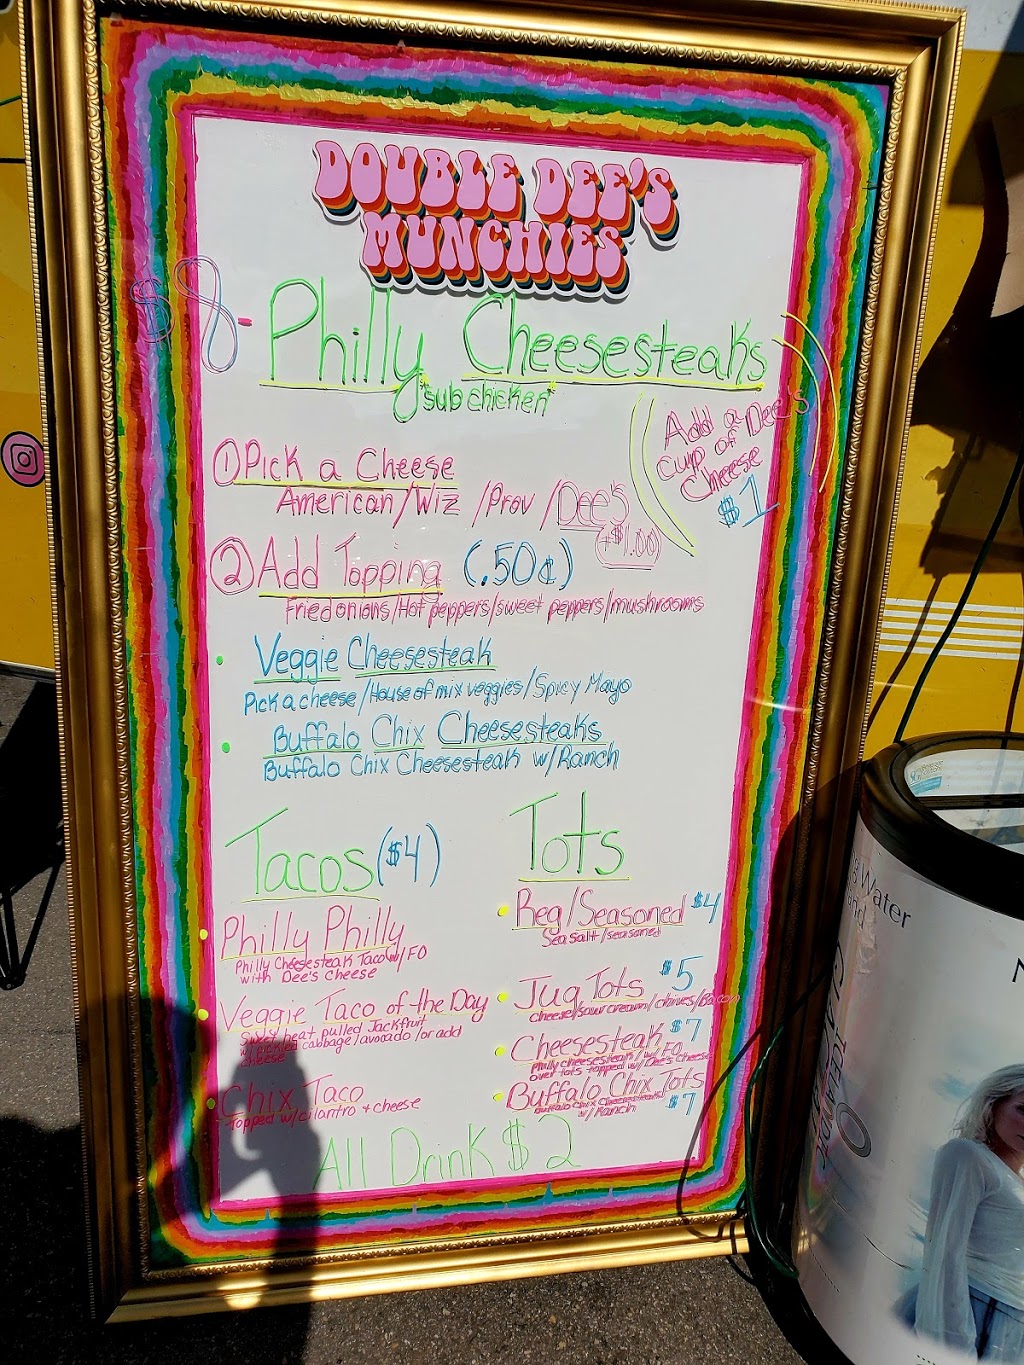 DOUBLE DEE'S
MUNCHIES
$8-Philly Cheesesteaks
"sub chicken"
Add a
cup of Dee's
Cheese
$1
①Pick a Cheese
American/Wiz/Prov/Dee's
(+$1.00)
②Add Topping (.50¢)
Fried onions/Hot peppers/sweet peppers/mushrooms
• Veggie Cheesesteak
Pick a cheese/House of mix veggies/Spicy Mayo
• Buffalo Chix Cheesesteaks
Buffalo Chix Cheesesteak w/Ranch
Tacos($4)
• Philly Philly
Philly Cheesesteak Taco w/FO
with Dee's cheese
• Veggie Taco of the Day
Sweet heat pulled Jackfruit
w/pickled cabbage/avocado/or add
cheese
• Chix Taco
Topped w/cilantro + cheese
Tots
• Reg/Seasoned $4
Sea salt/seasoned
• Jug Tots $5
cheese/sour cream/chives/Bacon
• Cheesesteak $7
Philly cheesesteak/w/FO
over tots topped w/Dee's cheese
• Buffalo Chix Tots
Buffalo Chix Cheesesteak
w/Ranch $7
All Drink $2
Water